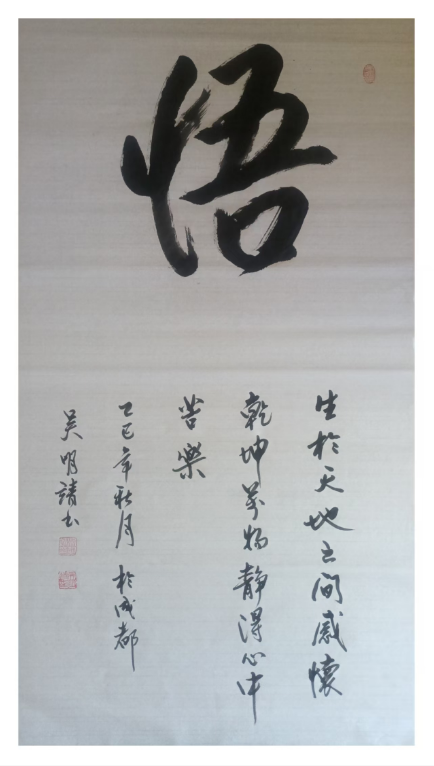 悟
生於天地之间感懷
乾坤萬物静得心中
苦樂
乙巳年秋月於成都
吴明靖书